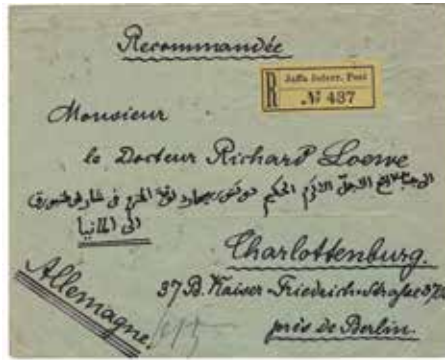 Recommandée
R Jaffa Österr. Post
№ 437
Monsieur
le Docteur Richard Loewe
الى المانيا
Charlottenburg.
37 B. Kaiser-Friedrich-Straße 37
près de Berlin.
Allemagne.